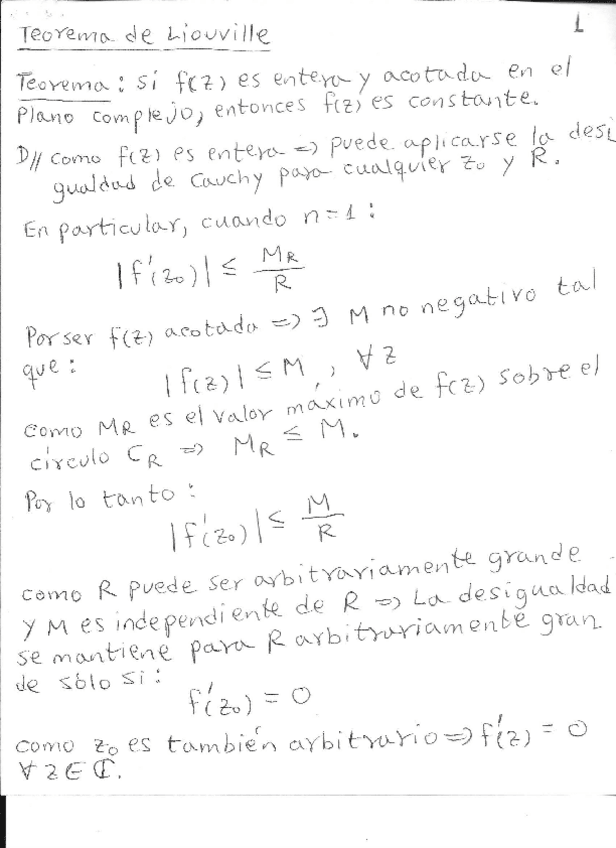 1
Teorema de Liouville
Teorema: si f(z) es entera y acotada en el
plano complejo, entonces f(z) es constante.
D// Como f(z) es entera => puede aplicarse la desi
gualdad de Cauchy para cualquier z₀ y R.
En particular, cuando n=1:
|f'(z₀)| ≤ M_R/R
Por ser f(z) acotada => ∃ M no negativo tal
que: |f(z)| ≤ M, ∀ z
como M_R es el valor máximo de f(z) sobre el
círculo C_R => M_R ≤ M.
Por lo tanto:
|f'(z₀)| ≤ M/R
como R puede ser arbitrariamente grande
y M es independiente de R => La desigualdad
se mantiene para R arbitrariamente gran
de sólo si:
f'(z₀) = 0
como z₀ es también arbitrario => f'(z) = 0
∀ z ∈ ℂ.